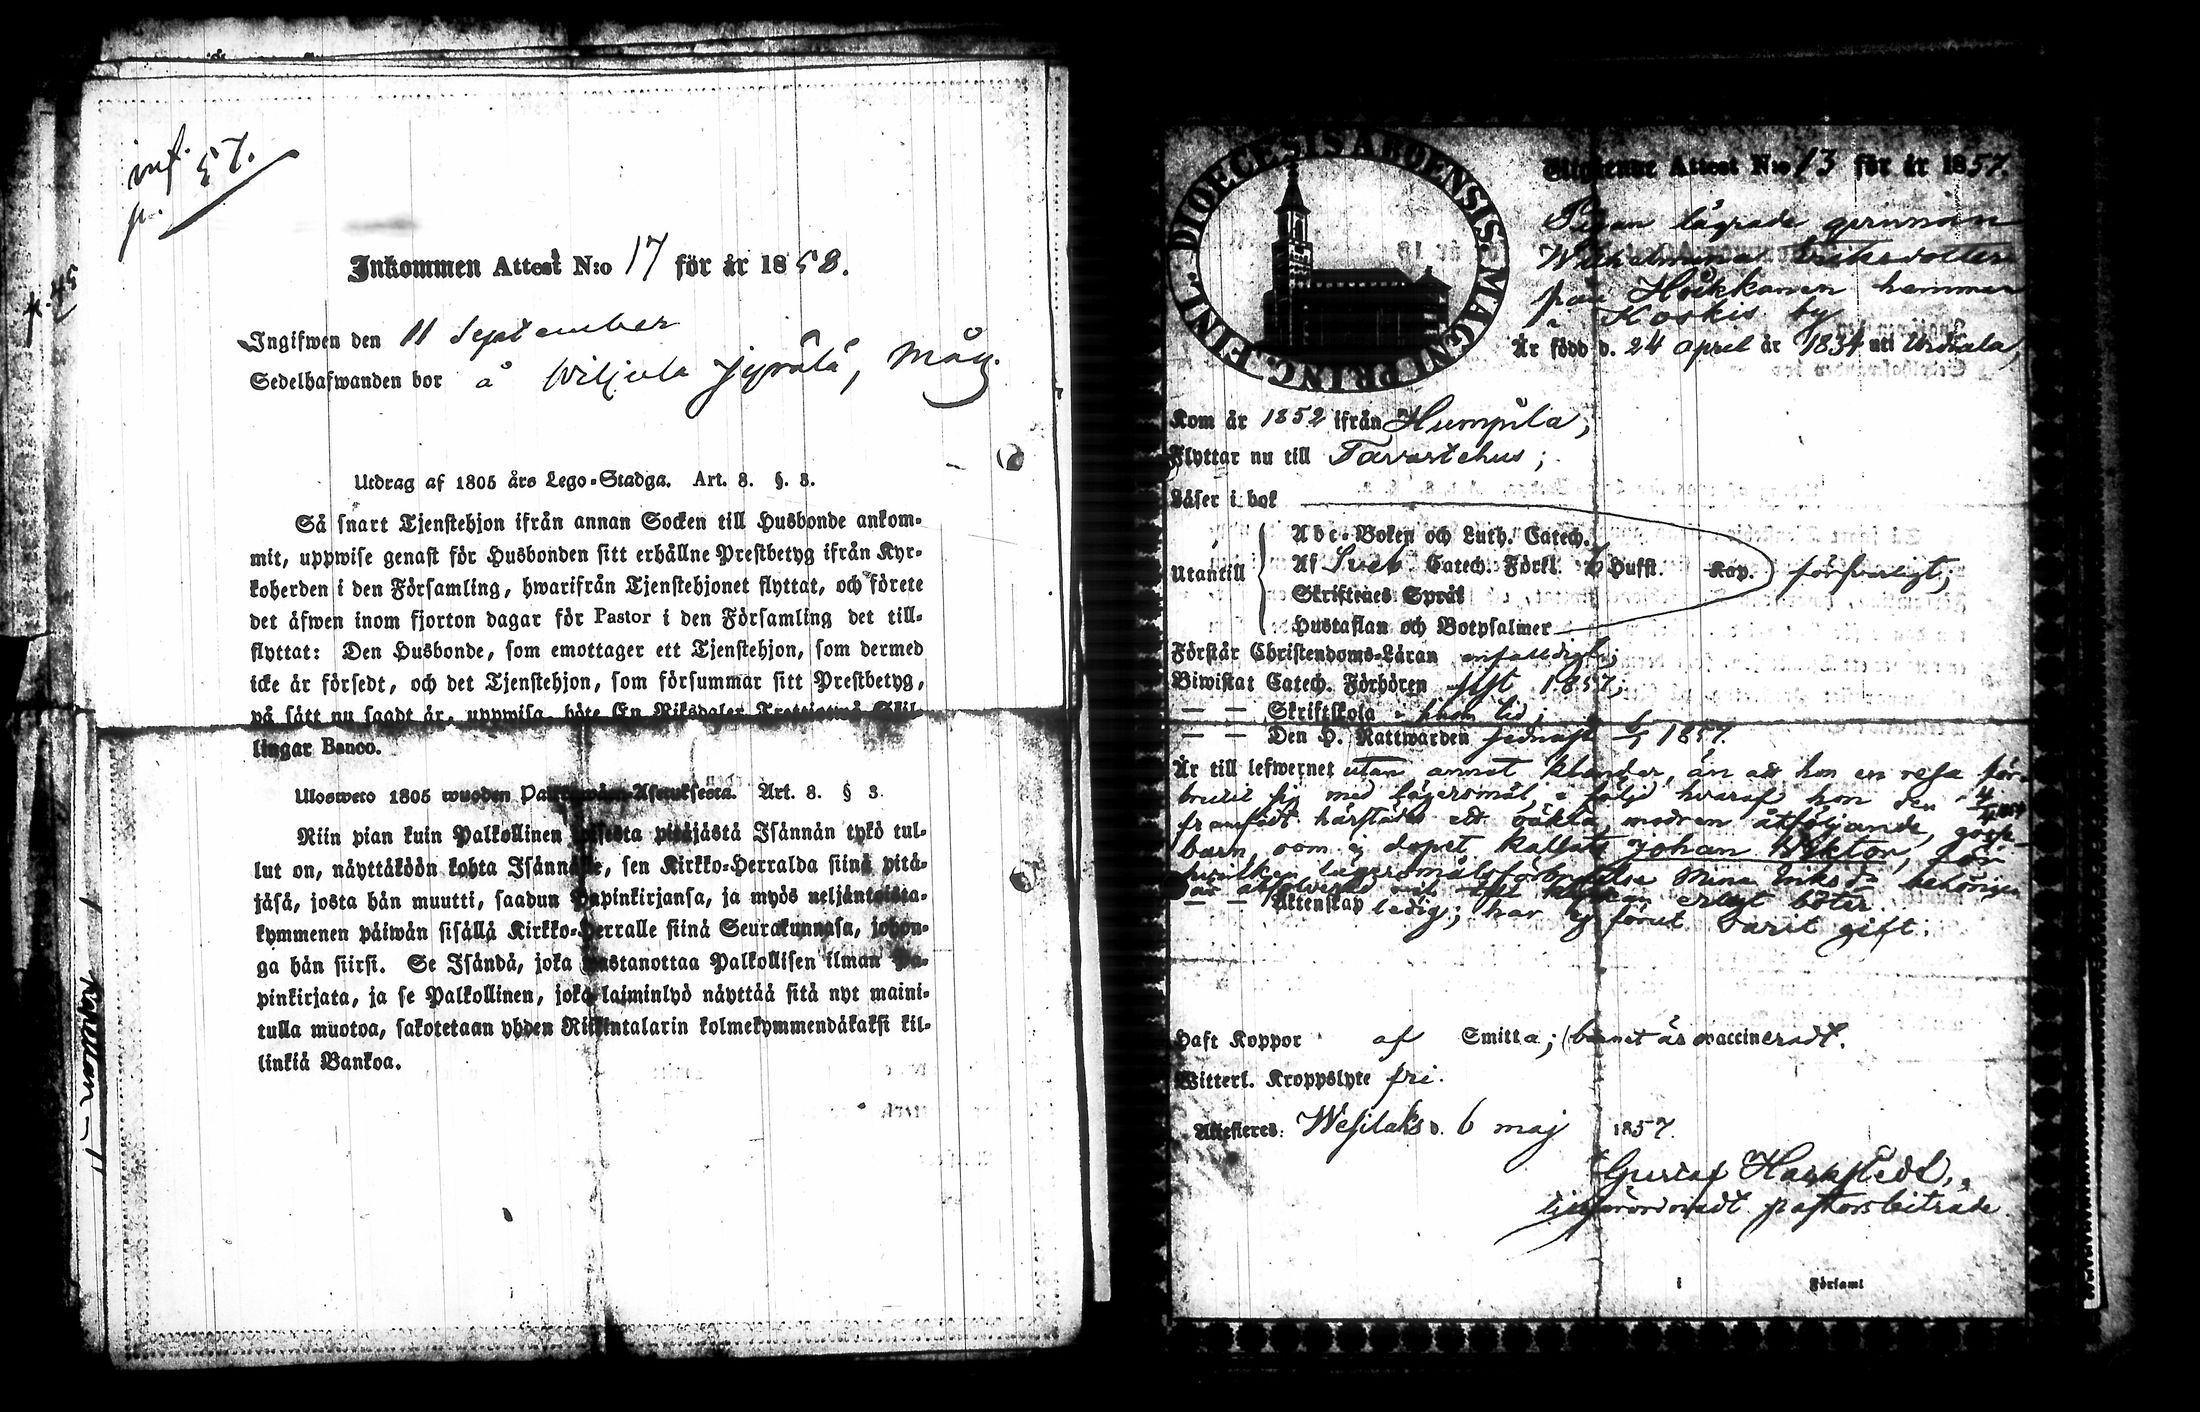 inf. 57.
p.
p. 45
Inkommen Attest N:o 17 för år 1858.
Ingifwen den 11 September
Sedelhafwanden bor å Wiljala Jyrälä,
Utdrag af 1805 års Lego-Stadga. Art. 8. §. 3.
Så snart Tjenstehjon ifrån annan Socken till Husbonde ankom-
mit, uppwise genast för Husbonden sitt erhållne Prestbetyg ifrån Kyr-
koherden i den Församling, hwarifrån Tjenstehjonet flyttat, och förete
det äfwen inom fjorton dagar för Pastor i den Församling det till-
flyttat: Den Husbonde, som emottager ett Tjenstehjon, som dermed
icke är försedt, och det Tjenstehjon, som försummar sitt Prestbetyg,
på sätt nu sagdt är, uppwisa, böte En Riksdaler Trettiotwå Skil-
lingar Banco.
Ulosweto 1805 wuoden Palkkawäen-Asetuksesta. Art. 8. § 3.
Niin pian kuin Palkollinen toisesta pitäjästä Isännän tykö tul-
lut on, näyttäköön kohta Isännälle, sen Kirkko-Herralda siinä pitä-
jäsä, josta hän muutti, saadun Papinkirjansa, ja myös neljäntoista-
kymmenen päiwän sisällä Kirkko-Herralle siinä Seurakunnasa, johon-
ga hän siirsi. Se Isändä, joka wastanottaa Palkollisen ilman Pa-
pinkirjata, ja se Palkollinen, joka laiminlyö näyttää sitä nyt maini-
tulla muotoa, sakotetaan yhden Riikintalarin kolmekymmendäkaksi kil-
linkiä Bankoa.
DIOECESIS ABOENSIS. MAGNI PRINC. FINL.
Utgående Attest N:o 13 för år 1857.
Pigan lägrade qvinnan
Wilhelmina Eriksdotter
från Hoikkanen hemman
i Koskis by
Är född d. 24 April år 1834 uti Urdiala,
Kom år 1852 ifrån Humpila,
Flyttar nu till Tavastehus;
Läser i bok
Utantill
Abc-Boken och Luth. Catech.
Af Sveb. Catech. Förkl. Hufst. Kap. försvarligt;
Skriftenes Språk
Hustaflan och Botpsalmer
Förstår Christendoms-Läran enfaldigt;
Biwistat Catech. Förhören sist 1857;
— — Skriftskola i sinom tid;
— — Den H. Nattwarden sednast 1857.
Är till lefwernet utan annat klander, än att hon en resa för-
brutit sig med lägersmål, i följd hvaraf hon den
framfödt härstädes ett oäkta, modren åtföljande, goss-
barn, som i dopet kallats Johan Wiktor, för
hvilken lägersmålsförbrytelse Mina Eriksdr behörigen
— — Äktenskap ledig; har ej förut varit gift.
Haft Koppor af Smitta; (barnet är vaccineradt.
Witterl. Kroppslyte fri.
Attesteres: Wesilaks d. 6 maj 1857.
Gustaf
tillförordnadt pastorsbiträde
i Församl